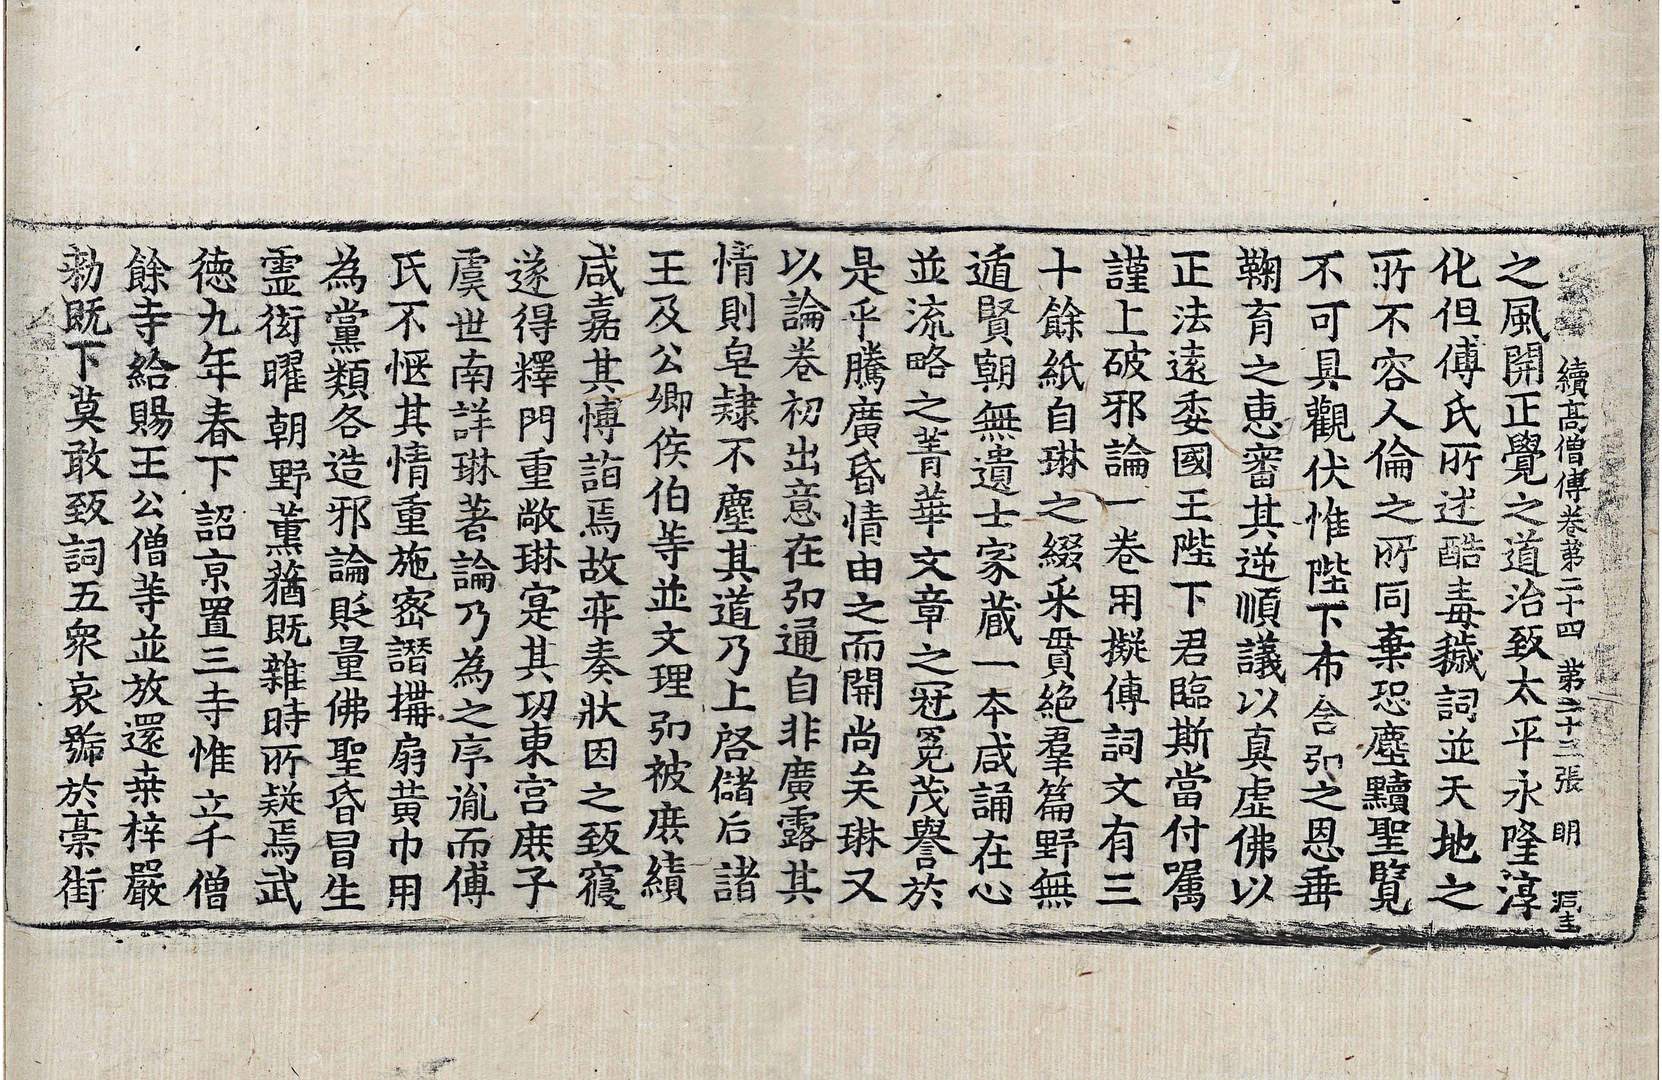 續高僧傳卷第二十四 第二十三張 明
之風開正覺之道治致太平永隆淳
化但傅氏所述酷毒穢詞並天地之
所不容人倫之所同棄恐塵黷聖覽
不可具觀伏惟陛下布含弘之恩垂
鞠育之惠審其逆順議以真虛佛以
正法遠委國王陛下君臨斯當付囑
謹上破邪論一卷用擬傅詞文有三
十餘紙自琳之綴采貫絶羣篇野無
遁賢朝無遺士家藏一本咸誦在心
並流略之菁華文章之冠冕茂譽於
是乎騰廣昏情由之而開尚矣琳又
以論卷初出意在弘通自非廣露其
情則皂隸不塵其道乃上啓儲后諸
王及公卿侯伯等並文理弘被庶績
咸嘉其博詣焉故弈奏狀因之致寢
遂得釋門重敞琳寔其功東宮庶子
虞世南詳琳著論乃為之序胤而傅
氏不愜其情重施密譖搆扇黃巾用
為黨類各造邪論貶量佛聖昏冒生
靈衒曜朝野薰蕕既雜時所疑焉武
德九年春下詔京置三寺惟立千僧
餘寺給賜王公僧等並放還桒梓嚴
勑既下莫敢致詞五衆哀號於槀街